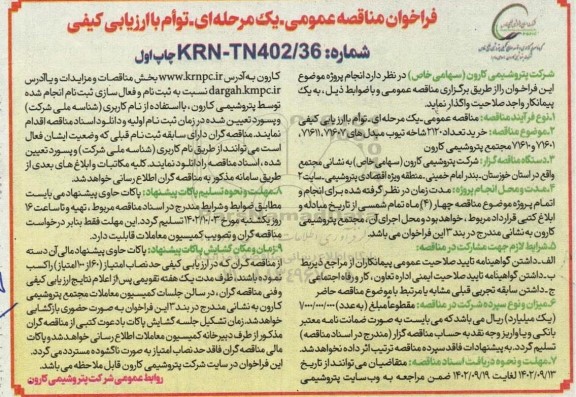 فراخوان مناقصه عمومی-یک مرحله‌ای-توأم با ارزیابی کیفی
شماره: KRN-TN402/36 چاپ اول
شرکت پتروشیمی کارون (سهامی خاص) در نظر دارد انجام پروژه موضوع
این فراخوان را از طریق برگزاری مناقصه عمومی و با ضوابط ذیل، به یک
پیمانکار واجد صلاحیت واگذار نماید.
۱.نوع فرآیند مناقصه: مناقصه عمومی-یک مرحله‌ای-توأم با ارزیابی کیفی
۲.موضوع مناقصه: خرید تعداد ۲۱۲۰ شاخه تیوب مبدل های ۷۱۶۰۷، ۷۱۶۱۱،
۷۱۶۰۱ و ۷۱۶۱۰ مجتمع پتروشیمی کارون
۳.دستگاه مناقصه گزار: شرکت پتروشیمی کارون (سهامی خاص) به نشانی مجتمع
واقع در استان خوزستان، بندر امام خمینی، منطقه ویژه اقتصادی پتروشیمی، سایت ۲
۴.مدت و محل انجام پروژه: مدت زمان در نظر گرفته شده برای انجام و
اتمام پروژه موضوع مناقصه چهار (۴) ماه تمام شمسی از تاریخ مبادله و
ابلاغ کتبی قرارداد مربوط، خواهد بود و محل اجرای آن، مجتمع پتروشیمی
کارون به نشانی مندرج در بند ۳ این فراخوان می باشد.
۵.شرایط لازم جهت مشارکت در مناقصه:
الف. داشتن گواهینامه تایید صلاحیت عمومی پیمانکاران از مراجع ذیربط
ب. داشتن گواهینامه تایید صلاحیت ایمنی اداره تعاون، کار و رفاه اجتماعی
ج. داشتن سابقه تجربی قبلی مشابه یا مرتبط با موضوع مناقصه حاضر
۶.میزان و نوع سپرده شرکت در مناقصه: مقطوعا مبلغ (به عدد)
(یک میلیارد) ریال می باشد که می بایست به صورت ضمانت نامه معتبر
بانکی و یا واریز وجه نقد به حساب مناقصه گزار (مندرج در اسناد مناقصه)
تسلیم گردد. به پیشنهادات فاقد سپرده مناقصه ترتیب اثر داده نخواهد شد.
۷.مهلت و نحوه دریافت اسناد مناقصه: متقاضیان می توانند از تاریخ
۱۴۰۲/۰۹/۱۳ لغایت ۱۴۰۲/۰۹/۱۹ ضمن مراجعه به وب سایت پتروشیمی
کارون به آدرس www.krnpc.ir بخش مناقصات و مزایدات و یا آدرس
dargah.kmpc.ir نسبت به ثبت نام و فعال سازی ثبت نام انجام شده
توسط پتروشیمی کارون، با استفاده از نام کاربری (شناسه ملی شرکت)
و پسورد تعیین شده در زمان ثبت نام اولیه و دانلود اسناد مناقصه اقدام
نمایند. مناقصه گران دارای سابقه ثبت نام قبلی که وضعیت ایشان فعال
است می توانند از طریق نام کاربری (شناسه ملی شرکت) و پسورد تعیین
شده، اسناد مناقصه را دانلود نمایند. کلیه مکاتبات و ابلاغ های بعدی از
طریق سامانه مذکور به مناقصه گران اطلاع رسانی خواهد شد.
۸.مهلت و نحوه تسلیم پاکات پیشنهاد: پاکات حاوی پیشنهاد می بایست
مطابق ضوابط و شرایط مندرج در اسناد مناقصه مربوط، تهیه و تا ساعت ۱۶
روز یکشنبه مورخ ۱۴۰۲/۱۰/۰۳ تسلیم گردد. این مهلت فقط بنابر درخواست
مناقصه گران و تصویب کمیسیون معاملات قابلیت دارد.
۹.زمان و مکان گشایش پاکات پیشنهاد: پاکات حاوی پیشنهاد مالی آن دسته
از مناقصه گران که در ارزیابی کیفی حد نصاب امتیاز (۶۰ از ۱۰۰ امتیاز) را کسب
نموده باشند، ظرف مدت یک هفته تقویمی پس از اعلام نتایج ارزیابی کیفی
و فنی مناقصه گران، در سالن جلسات کمیسیون معاملات مجتمع پتروشیمی
کارون به نشانی مندرج در بند ۳ این فراخوان به صورت حضوری بازگشایی
خواهد شد. زمان تشکیل جلسه گشایش پاکات با دعوت کتبی از مناقصه گران
مذکور از طرف دبیرخانه کمیسیون معاملات اطلاع رسانی خواهد شد و پاکات
مالی مناقصه گران فاقد حد نصاب امتیاز به صورت ناگشوده مسترد می گردد.
این فراخوان در سایت شرکت پتروشیمی کارون قابل ملاحظه می باشد.
روابط عمومی شرکت پتروشیمی کارون